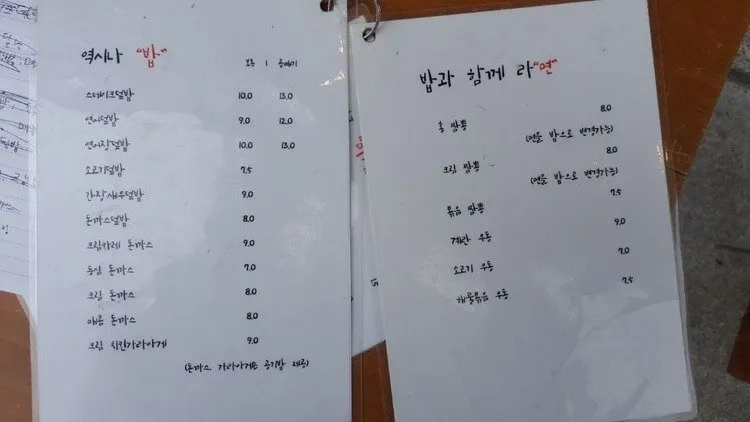 역시나 "밥"
보통 | 곱빼기
스테이크덮밥 10.0 13.0
연어덮밥 9.0 12.0
연어장덮밥 10.0 13.0
소고기덮밥 7.5
간장새우덮밥 9.0
돈까스덮밥 8.0
크림카레 돈까스 9.0
등심 돈까스 7.0
크림 돈까스 8.0
매콤 돈까스 8.0
크림 치킨가라아게 9.0
(돈까스, 가라아게는 공기밥 제공)
밥과 함께 라"면"
홍 짬뽕 8.0
(면을 밥으로 변경가능)
크림 짬뽕 8.0
(면을 밥으로 변경가능)
볶음 짬뽕 7.5
계란 우동 9.0
소고기 우동 7.0
해물볶음 우동 7.5